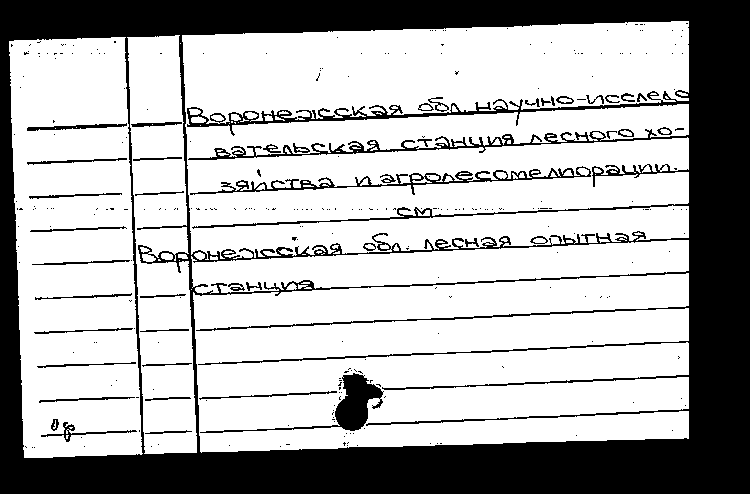 Воронежская обл. научно-исследо
вательская станция лесного хо-
зяйства и агролесомелиорации.
см.
Воронежская обл. лесная опытная
станция.